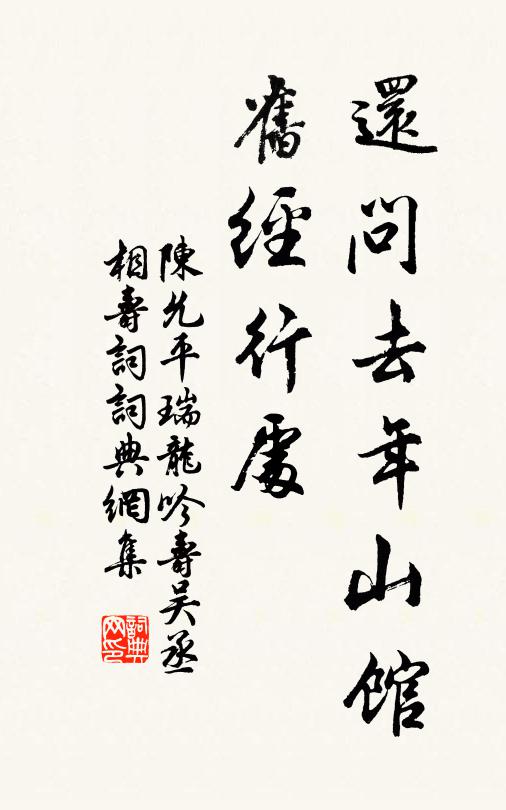 還問去年山館
舊經行處
陳允平瑞龍吟壽吳丞
相壽詞詞典網集
詞典网印